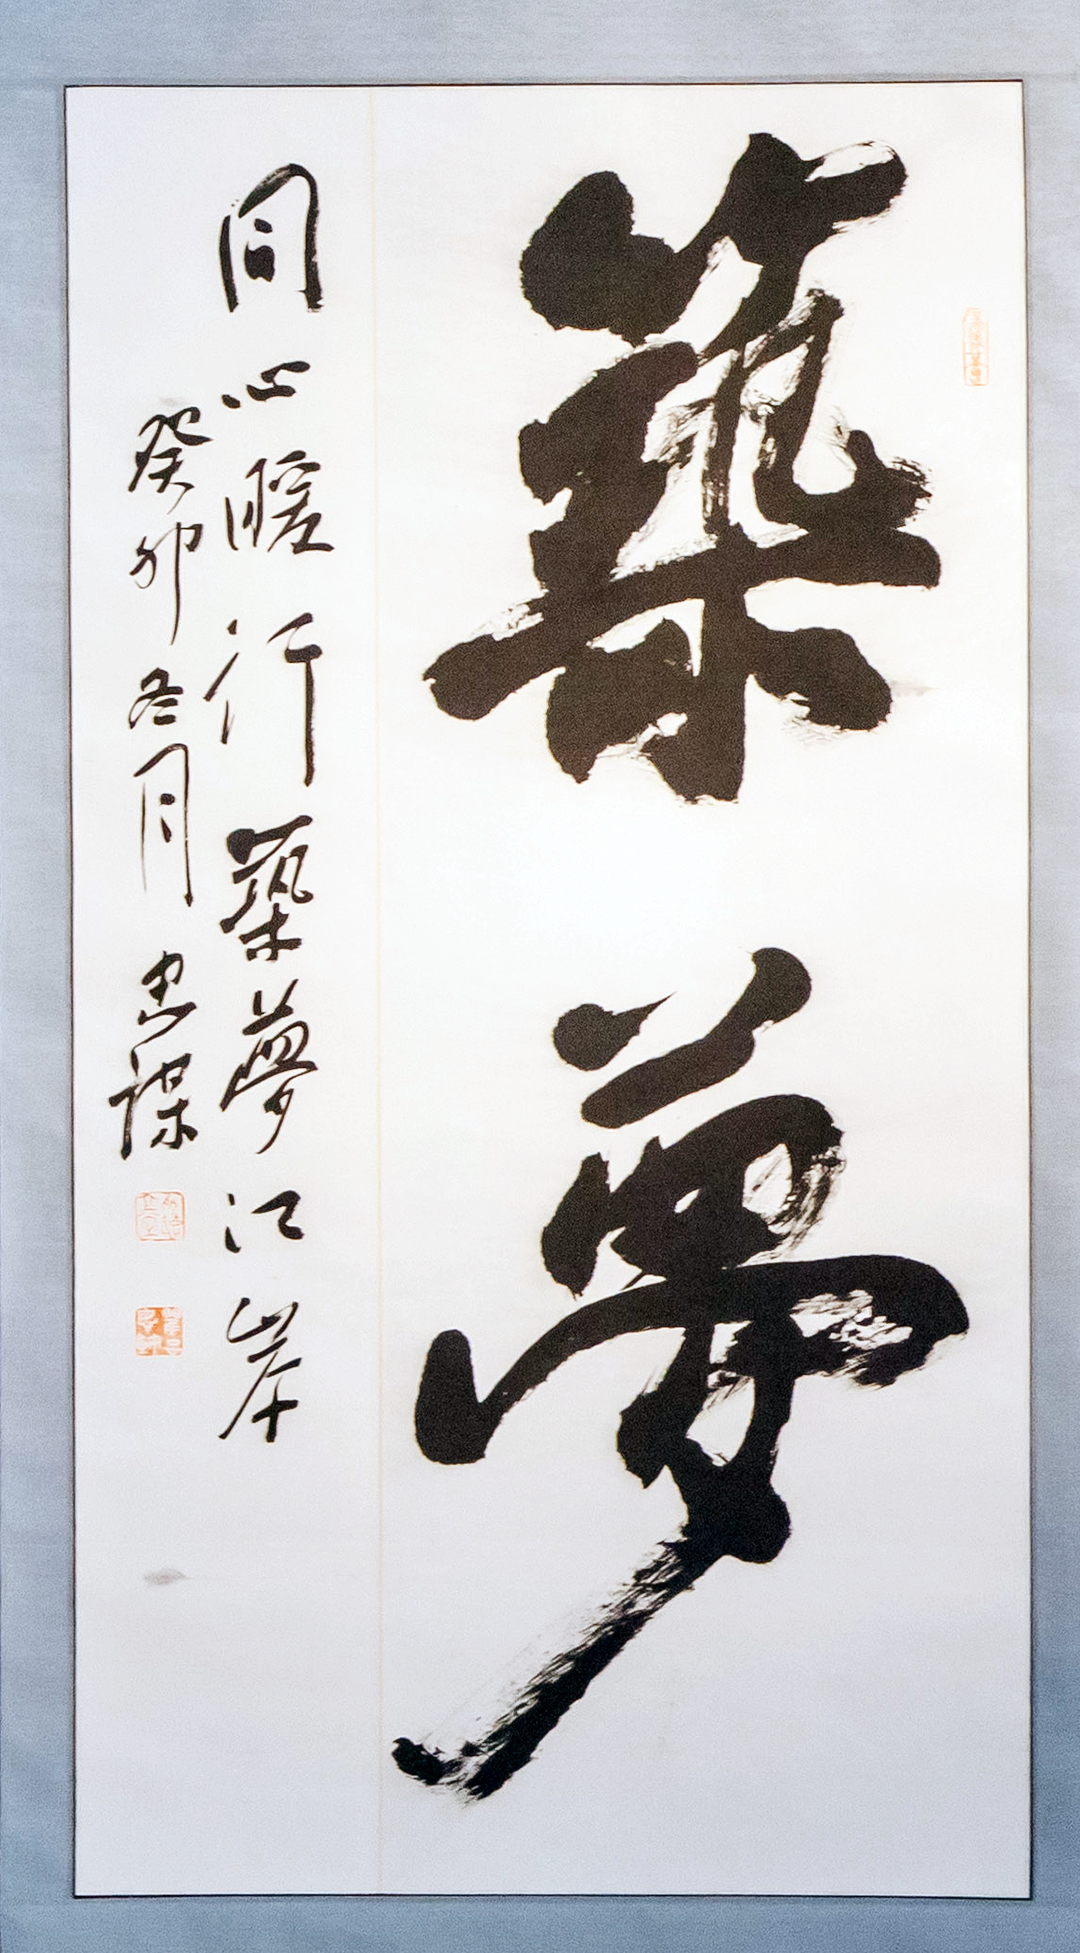 築夢
同心暖行築夢江岸
癸卯冬月 忠謀